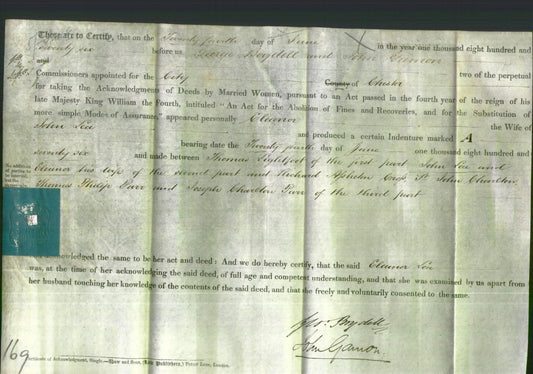 These are to Certify, that on the Twenty fourth day of June in the year one thousand eight hundred and
seventy six before us George Boydell and John Gamon
and two of the perpetual
Commissioners appointed for the City County of Chester
for taking the Acknowledgments of Deeds by Married Women, pursuant to an Act passed in the fourth year of the reign of his
late Majesty King William the Fourth, intituled "An Act for the Abolition of Fines and Recoveries, and for the Substitution of
more simple Modes of Assurance," appeared personally Eleanor
John Lea the Wife of
and produced a certain Indenture marked A
bearing date the Twenty fourth day of June one thousand eight hundred and
seventy six and made between Thomas Lightfoot of the first part John Lea and
Eleanor his wife of the second part and Richard St John Charlton
Thomas Philip and Joseph Charlton Parr of the third part
No addition
acknowledged the same to be her act and deed: And we do hereby certify, that the said Eleanor Lea
was, at the time of her acknowledging the said deed, of full age and competent understanding, and that she was examined by us apart from
her husband touching her knowledge of the contents of the said deed, and that she freely and voluntarily consented to the same.
Geo: Boydell
John Gamon
169
Certificate of Acknowledgment, Single.—Shaw and Sons, (Law Publishers,) Fetter Lane, London.